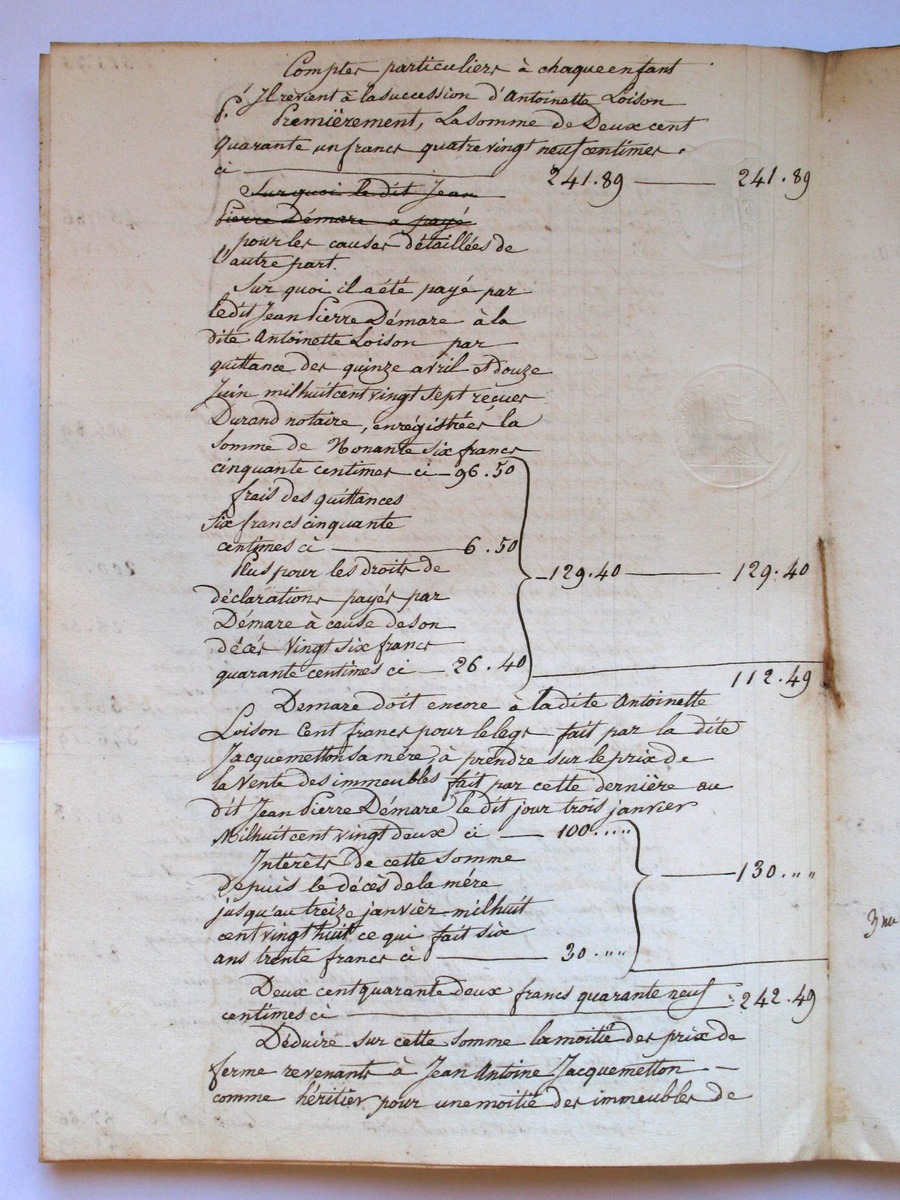 Comptes particuliers à chaque enfant
Il revient à la succession d'Antoinette Loison
P.r Premièrement, La Somme de Deux cent
quarante un francs quatre vingt neuf centimes.
ci 241.89 241.89
Sur quoi le dit Jean
Pierre Démare a payé
pour les causes détaillées de
l'autre part.
Sur quoi il a été payé par
ledit Jean Pierre Démare à la
dite Antoinette Loison par
quittance des quinze avril et douze
Juin mil huit cent vingt sept reçues
Durand notaire, enrégistrées la
Somme de Nonante six francs
cinquante centimes ci 96.50
frais des quittances
six francs cinquante
centimes ci 6.50
Plus pour les droits de 129.40 129.40
déclarations payés par
Démare à cause de son
décés Vingt six francs
quarante centimes ci 26.40
112.49
Demare doit encore à ladite Antoinette
Loison Cent francs pour le legs fait par la dite
Jacquemetton sa mère, à prendre sur le prix de
la Vente des immeubles fait par cette dernière au
dit Jean Pierre Démare le dit jour trois janvier
Mil huit cent vingt deux ci 100.""
Intérêts de cette somme
Depuis le décès de la mére 130.""
jusqu'au treize janvier mil huit
cent vingt huit ce qui fait six
ans trente francs ci 30.""
Deux cent quarante deux francs quarante neuf
centimes ci 242.49
Déduire sur cette somme la moitié des prix de
ferme revenants à Jean Antoine Jacquemetton
comme héritier pour une moitié des immeubles de